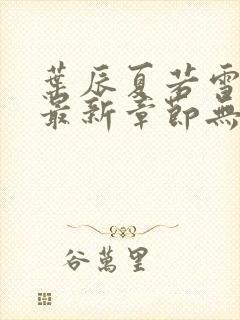 葉辰夏若雪
最新章節無
谷萬里